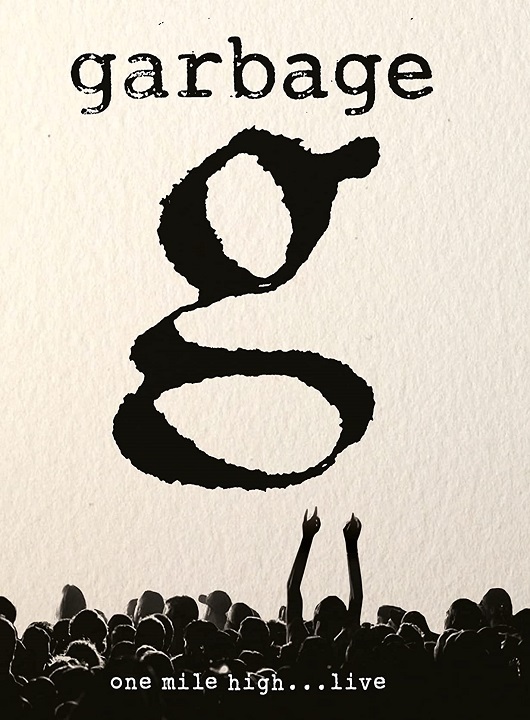 garbage
g
one mile high...live